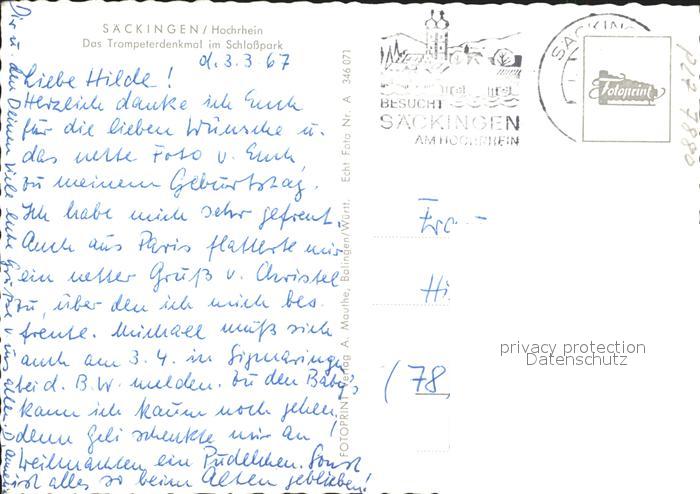 SÄCKINGEN / Hochrhein
Das Trompeterdenkmal im Schloßpark
d. 3.3.67
Liebe Hilde!
Herzlich danke ich Euch
für die lieben Wünsche u.
das nette Foto v. Euch
zu meinem Geburtstag.
Ich habe mich sehr gefreut.
Auch aus Paris flatterte mir
ein netter Gruß v. Christel
zu, über den ich mich bes.
freute. Michael muß sich
auch am 3.4. in Sigmaringen
bei d. B.W. melden. Zu den Baby's
kann ich kaum noch gehen,
denn Geli schenkte mir an
Weihnachten ein Pudelchen. Sonst
ist alles so beim Alten geblieben!
Dir u. den Deinen viele liebe Grüße v. uns allen
FOTOPRINT Verlag A. Mauthe, Balingen/Württ. Echt Foto Nr. A 346 071
BESUCHT
SÄCKINGEN
AM HOCHRHEIN
SÄCKING
Fotoprint
Hi
(78
privacy protection
Datenschutz